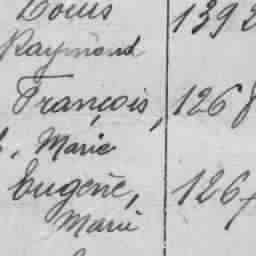 Louis 139
Raymond
François, 126
Marie
Eugène, 126
Marie